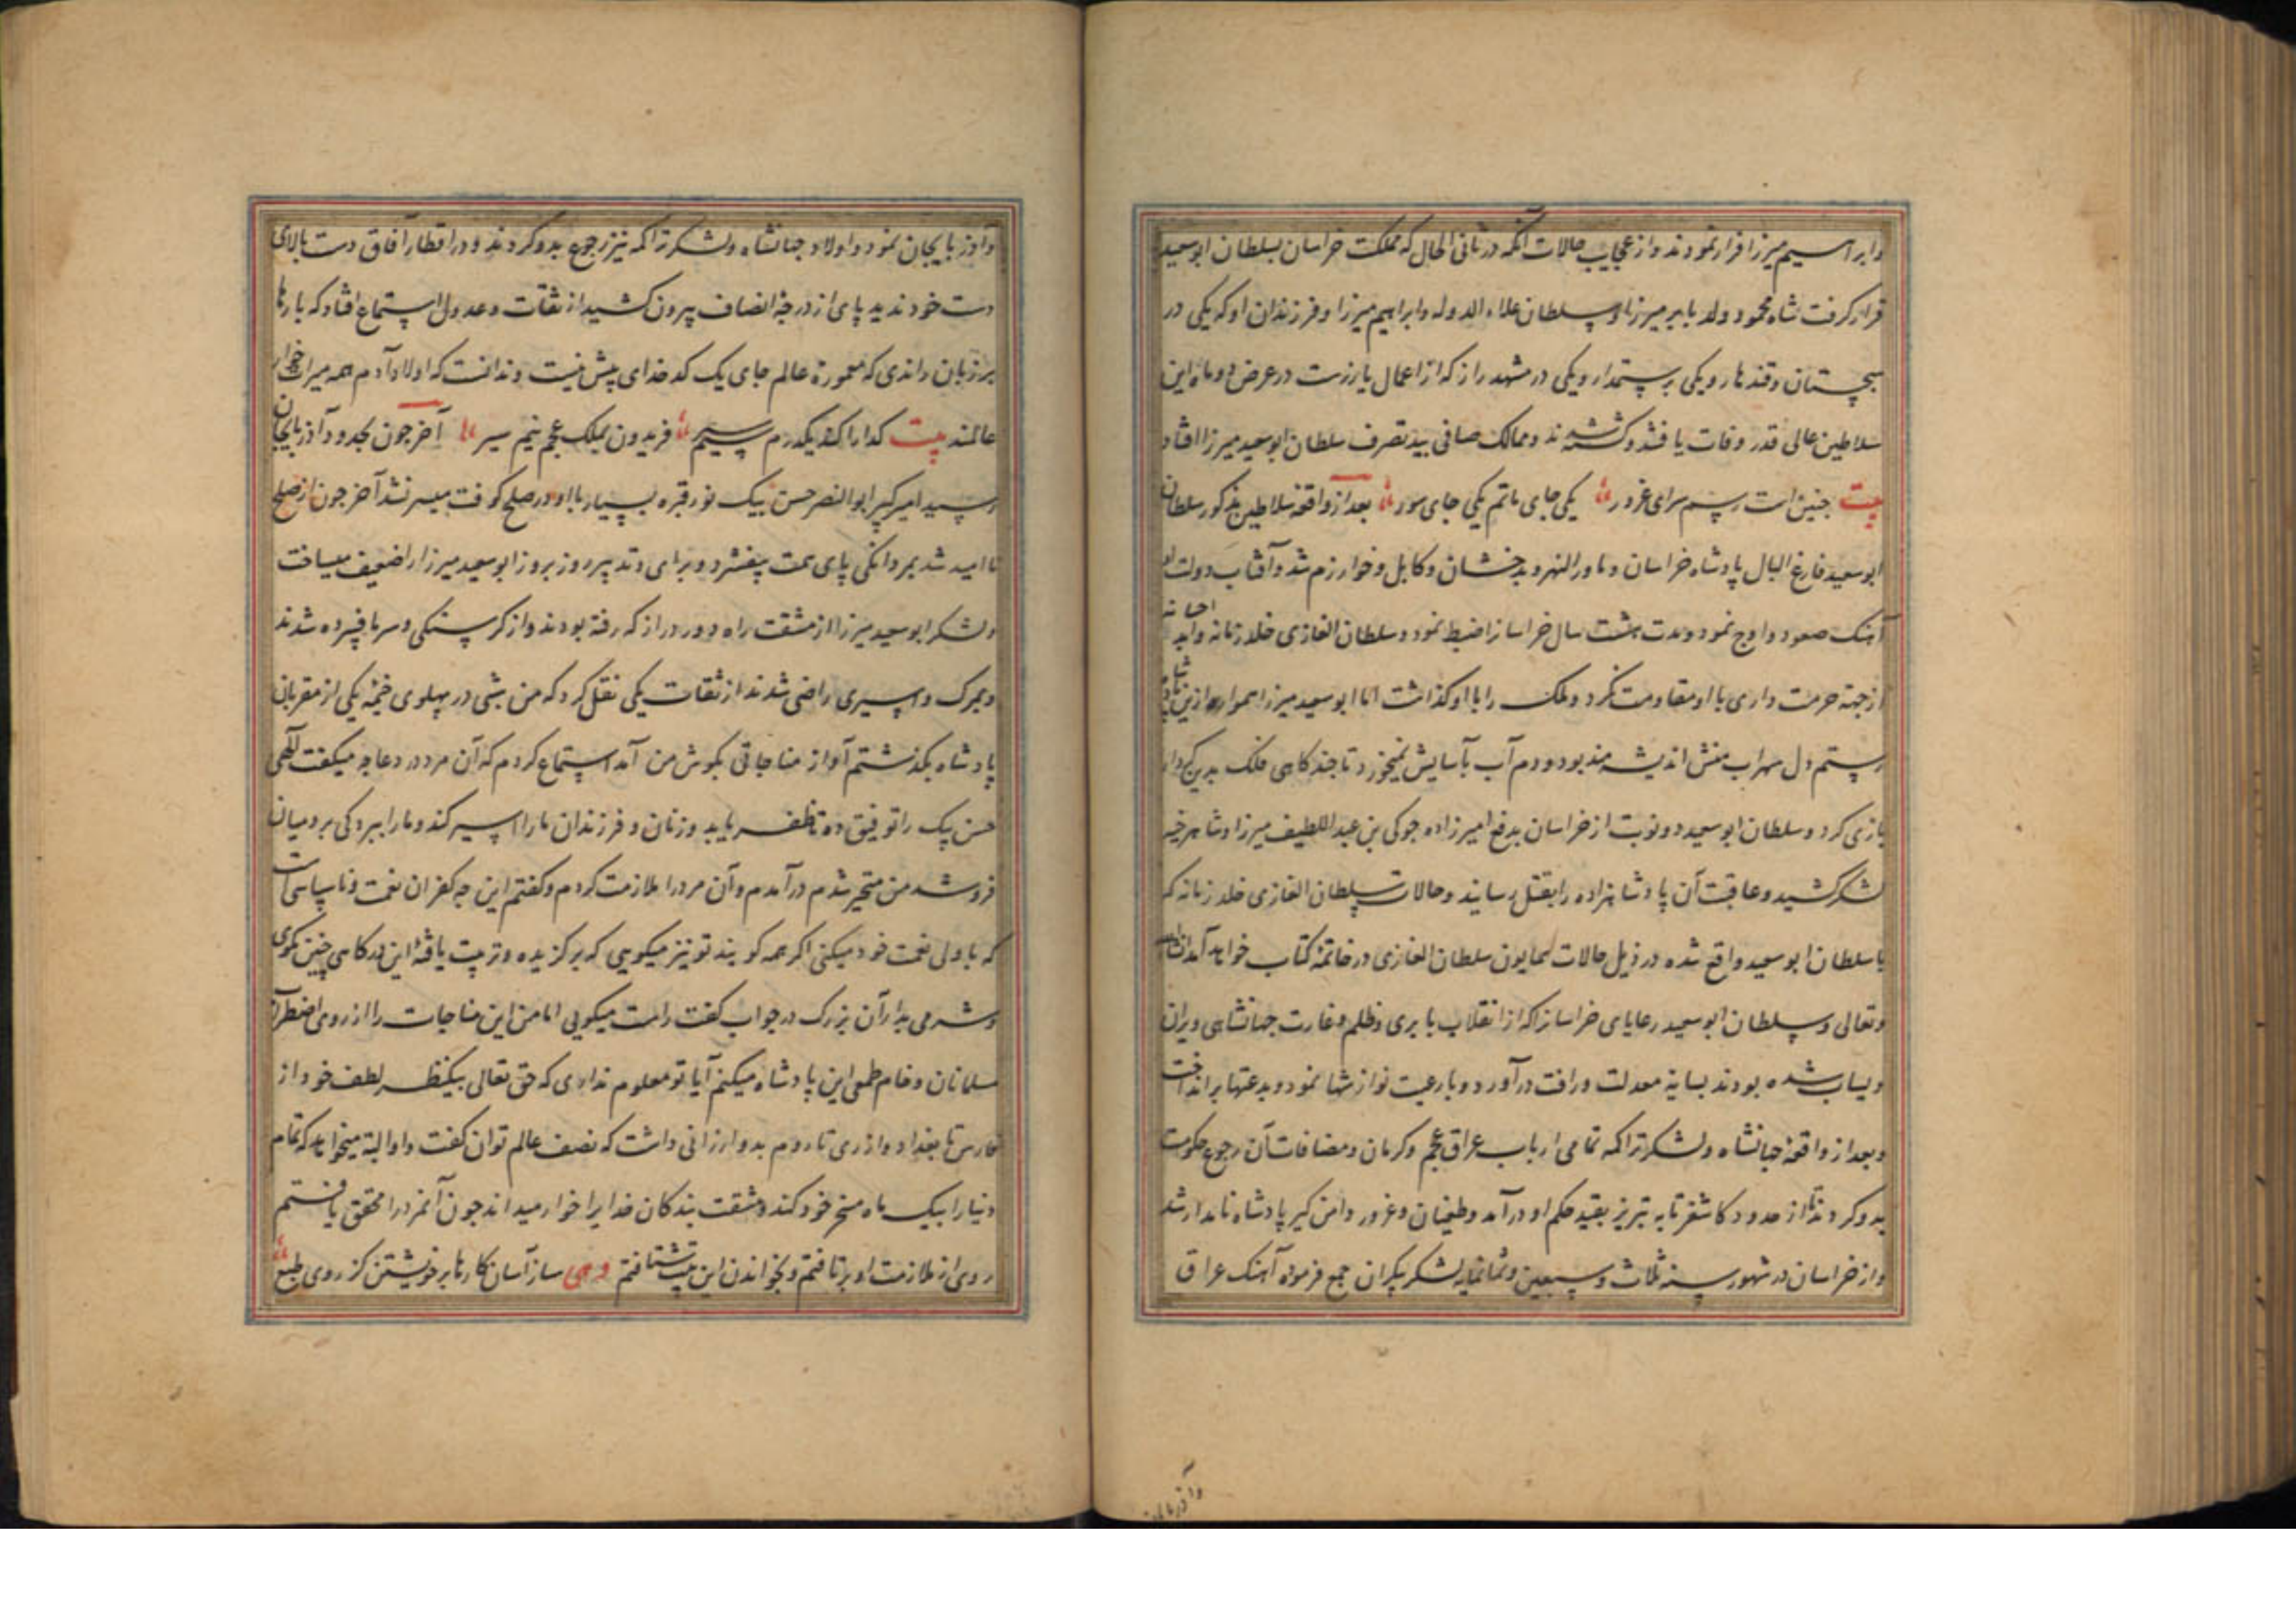 وابراسیم میرزا فرار نمودند و از عجایب حالات آنکه در ثانی الحال که مملکت خراسان بسلطان ابوسعید
قرار کرفت شاه محمود ولد بابر میرزا و سلطان علاء الدوله و ابراهیم میرزا و فرزندان او که یکی در
سجستان و قندهار و یکی برستمدار و یکی در مشهد راز که از اعمال یازرست در عرض دو ماه این
سلاطین عالی قدر وفات یافتند و کشته شدند و ممالک صافی بید تصرف سلطان ابوسعید میرزا افتاد
بیت جنین است رسم سرای غرور یکی جای ماتم یکی جای سور بعد از واقعه سلاطین مذکور سلطان
ابوسعید فارغ البال پادشاه خراسان و ماورالنهر و بدخشان و کابل و خوارزم شد و آفتاب دولت او
آهنک صعود و اوج نمود و مدت هشت سال خراسانرا ضبط نمود و سلطان الغازی خلد زمانه و ابد احسانه
از جهة حرمت داری با او مقاومت نکرد و ملک را با او کذاشت اما ابوسعید میرزا همواره ازین
رستم دل سهراب منش اندیشه مند بود و دم آب بآسایش نمیخورد تا جند کاهی فلک بدین کردار
بازی کرد و سلطان ابوسعید دو نوبت از خراسان بدفع امیرزاده جوکی بن عبد اللطیف میرزا و شاهرخیه
لشکر کشید و عاقبت آن پادشاهزاده را بقتل رسانید و حالات سلطان الغازی خلد زمانه که
با سلطان ابوسعید واقع شده در ذیل حالات همایون سلطان الغازی در خاتمة کتاب خواهد آمد انشاءالله
و تعالی و سلطان ابوسعید رعایای خراسانرا که از انقلاب بابری و ظلم و غارت جهانشاهی ویران
و بیاب شده بودند بسایة معدلت و رافت درآورد و با رعیت نوازشها نمود و بدعتها برانداخت
و بعد از واقعة جهانشاه و لشکر تراکمه تمامی ارباب عراق عجم و کرمان و مضافات آن رجوع حکومت
بدو کردند تا از حدود کاشغر تا به تبریز بقید حکم او درآمد و طغیان و غرور دامن کیر پادشاه نامدار شد
و از خراسان در شهور سنه ثلاث و سبعین و ثمانمایه لشکر بیکران جمع فرموده آهنک عراق
وآذربایجان
و آذربایجان نمود و اولاد جهانشاه و لشکر تراکمه نیز رجوع بدو کردند و در اقطار آفاق دست بالای
دست خود ندید پای از درجة انصاف بیرون کشید از ثقات و عدول استماع افتاد که بارها
بر زبان راندی که معمورة عالم جای یک کدخدای بیش نیست و ندانست که اولاد آدم همه میراث خوار
عالمند بیت کدا را کند یکدرم سیم سیر فریدون بملک عجم نیم سیر آخر جون بحدود آذربایجان
رسید امیر کبیر ابو النصر حسن بیک نور قبره بسیار با او در صلح کوفت میسر نشد آخر جون از صلح
نا امید شد بمردانکی پای همت بیفشرد و برای و تدبیر روز بروز ابوسعید میرزا را ضعیف میساخت
و لشکر ابوسعید میرزا از مشقت راه دور دراز که رفته بودند و از کرسنکی و سرما فسرده شدند
و بمرک و اسیری راضی شدند از ثقات یکی نقل کرد که من شبی در پهلوی خیمة یکی از مقربان
پادشاه بکذشتم آواز مناجاتی بکوش من آمد استماع کردم که آن مرد در دعا جه میکفت الهی
حسن بیک را توفیق ده تا ظفر یابد و زنان و فرزندان ما را اسیر کند و ما را ببردکی برومیان
فروشد من متحیر شدم درآمدم و آن مرد را ملازمت کردم و کفتم این جه کفران نعمت و ناسپاسی است
که با ولی نعمت خود میکنی اکر همه کویند تو نیز میکویی که برکزیده و تربیت یافتة این درکاهی جنین مکوی
و شرمی بدار آن بزرک در جواب کفت راست میکویی اما من این مناجات را از روی اضطرار
مسلمانان و خام طمعی این پادشاه میکنم آیا تو معلوم نداری که حق تعالی بیکنظر لطف خود از
فارس تا بغداد و از ری تا روم بدو ارزانی داشت که نصف عالم توان کفت و او البته میخواهد که تمام
دنیا را بیک ماه مسخر خود کند و مشقت بندکان خدایرا خوار میداند جون آنمرد را محقق یافتم
روی از ملازمت او برتافتم و بخواندن این بیت شتافتم ساز آسان کارها بر خویشتن کز روی طبع